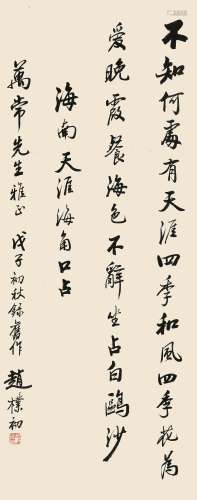 不知何處有天涯四季和風四季花為
愛晚霞餐海色不辭坐占白鷗沙
海南天涯海角口占
萬常先生雅正 戊子初秋錄舊作 趙樸初